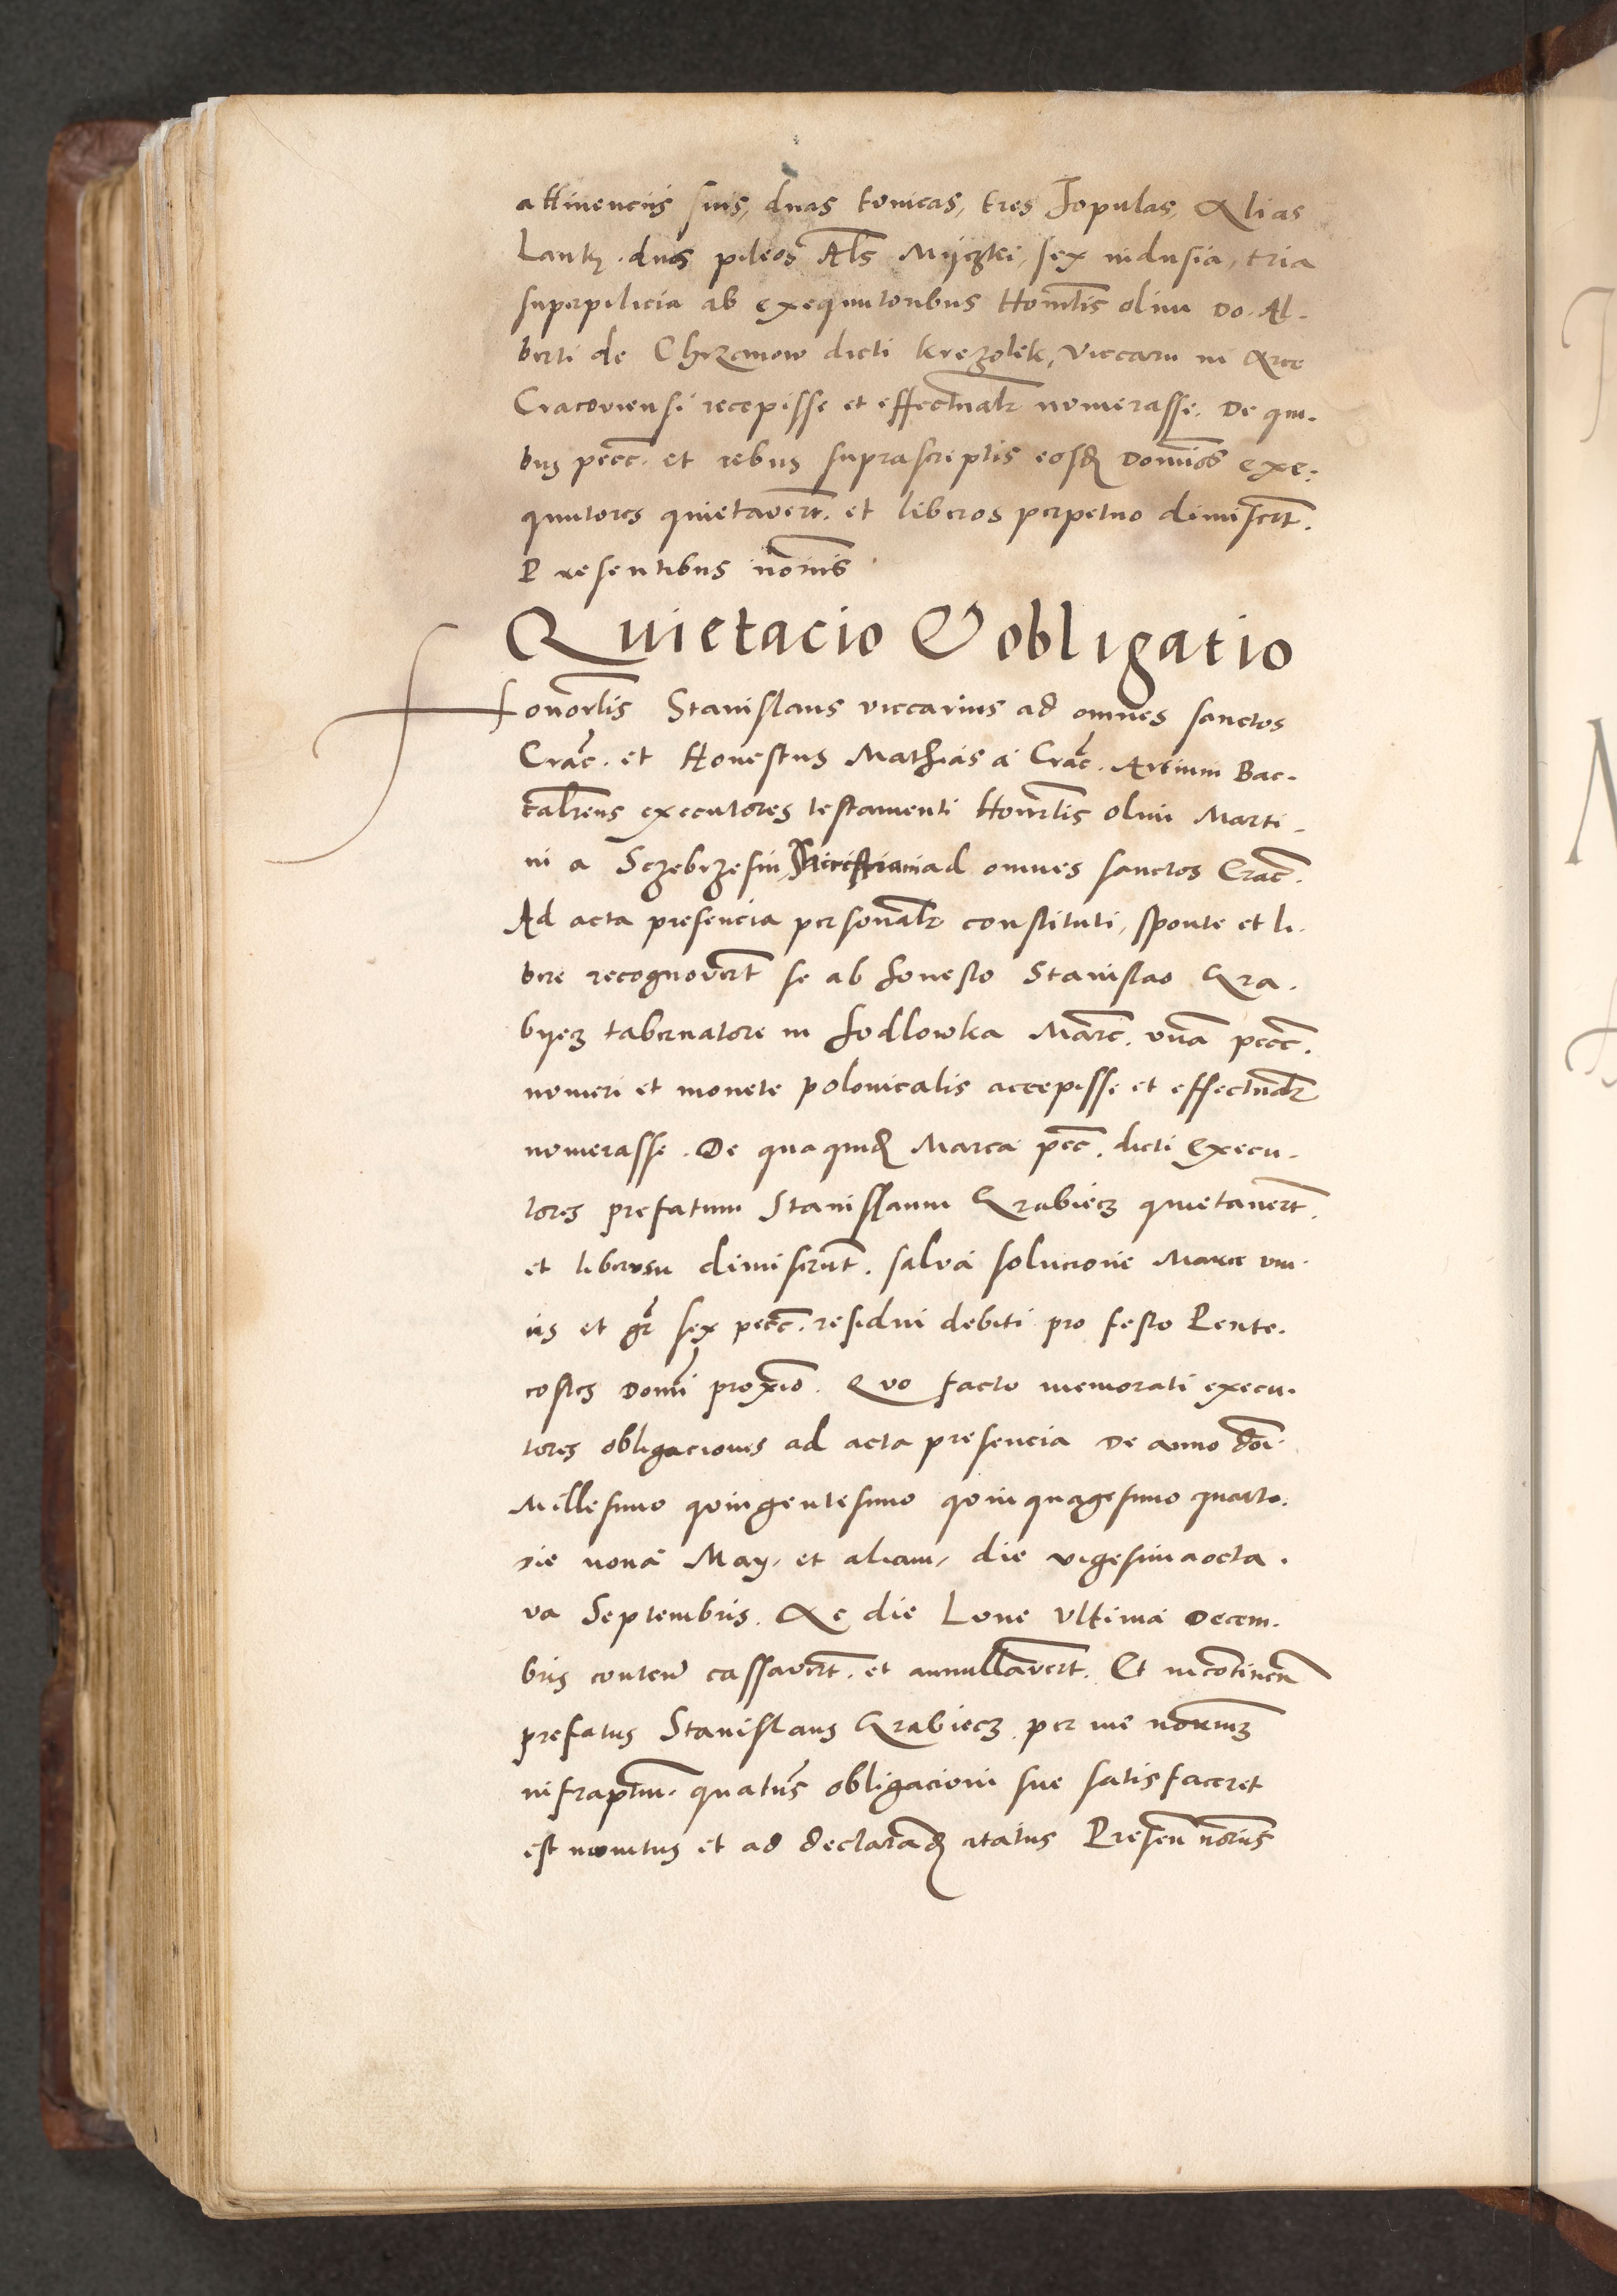 attinenciis suis, duas tunicas, tres Jopulas, Alias
duos pileos Als Myczki, sex indusia, tria
superpilicia ab exequutoribus Honorlis olim Do. Al-
berti de Chrzanow dicti Krezolek, Viccarii in Arce
Cracoviensi recepisse et effectualr numerasse. De qui-
bus pecc. et rebus suprascriptis eosd Dominos exe-
quutores quietavert. et liberos perpetuo dimisert.
Presentibus
Quietacio & obligatio
Honorlis Stanislaus viccarius ad omnes sanctos
Crac. et Honestus Mathias a Crac. Artium Bac-
calrens executores testamenti Honorlis olim Marti-
ni a Sczebrzesin, ad omnes sanctos Crac.
Ad acta presencia personalr constituti, sponte et li-
bere recognovert se ab honesto Stanislao Gra-
byecz tabernatore in Hodlowka Marc. unam pecc.
numeri et monete polonicalis accepisse et effectualr
numerasse. De qua quid Marca pecc. dicti Execu-
tores prefatum Stanislaum Grabiecz quietavert.
et liberum dimiserunt. salva solucione Marce uni-
us et gr sex pecc. residui debiti pro festo Pente-
costes Domi proximo. Quo facto memorati execu-
tores obligaciones ad acta presencia De anno doi.
Millesimo quingentesimo quinquagesimo quarto.
die nona May, et aliam, die vigesimaocta-
va Septembris. Ac die Lune ultima Decem-
bris conten cassavert. et annullavert. Et incontinen
prefatus Stanislaus Grabiecz per me
infraptum. quatenus obligacioni sue satisfaceret
est monitus et ad declarand citatus Presen